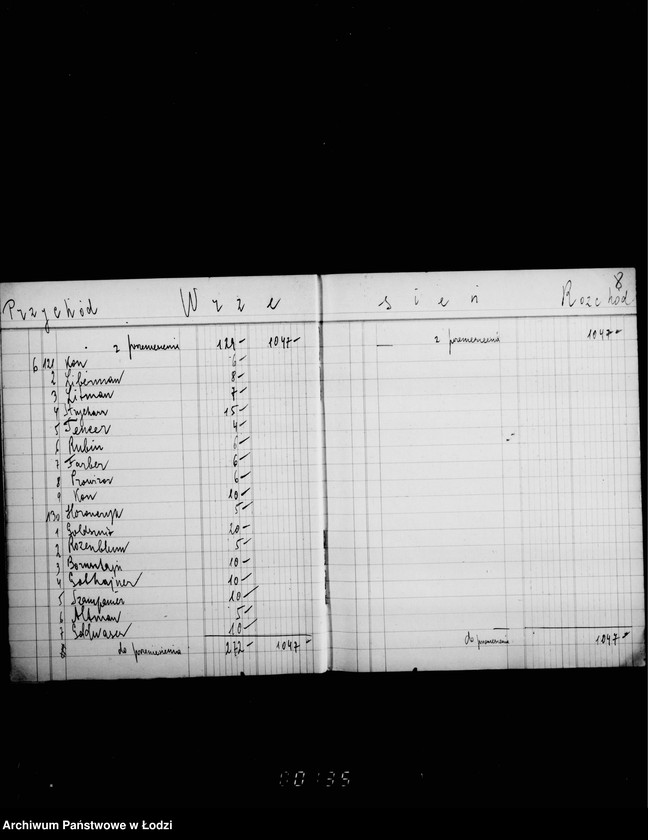 8
Przychód Wrze sień Rozchód
z przeniesienia 129- 1047-
6 121 Kon 6-
2 Liberman 8-
3 Litman 7-
4 15-
5 Tencer 4-
6 Rubin 6-
7 Farber 6-
8 Prowizor 6-
9 Kon 10-
130 5-
1 20-
2 Rozenblum 5-
3 Bornsztajn 10-
4 10-
5 Szampanier 10-
6 Altman 5-
7 Goldwaser 10-
8 do przeniesienia 272- 1047-
z przeniesienia 1047-
do przeniesienia 1047-
00135
Archiwum Państwowe w Łodzi